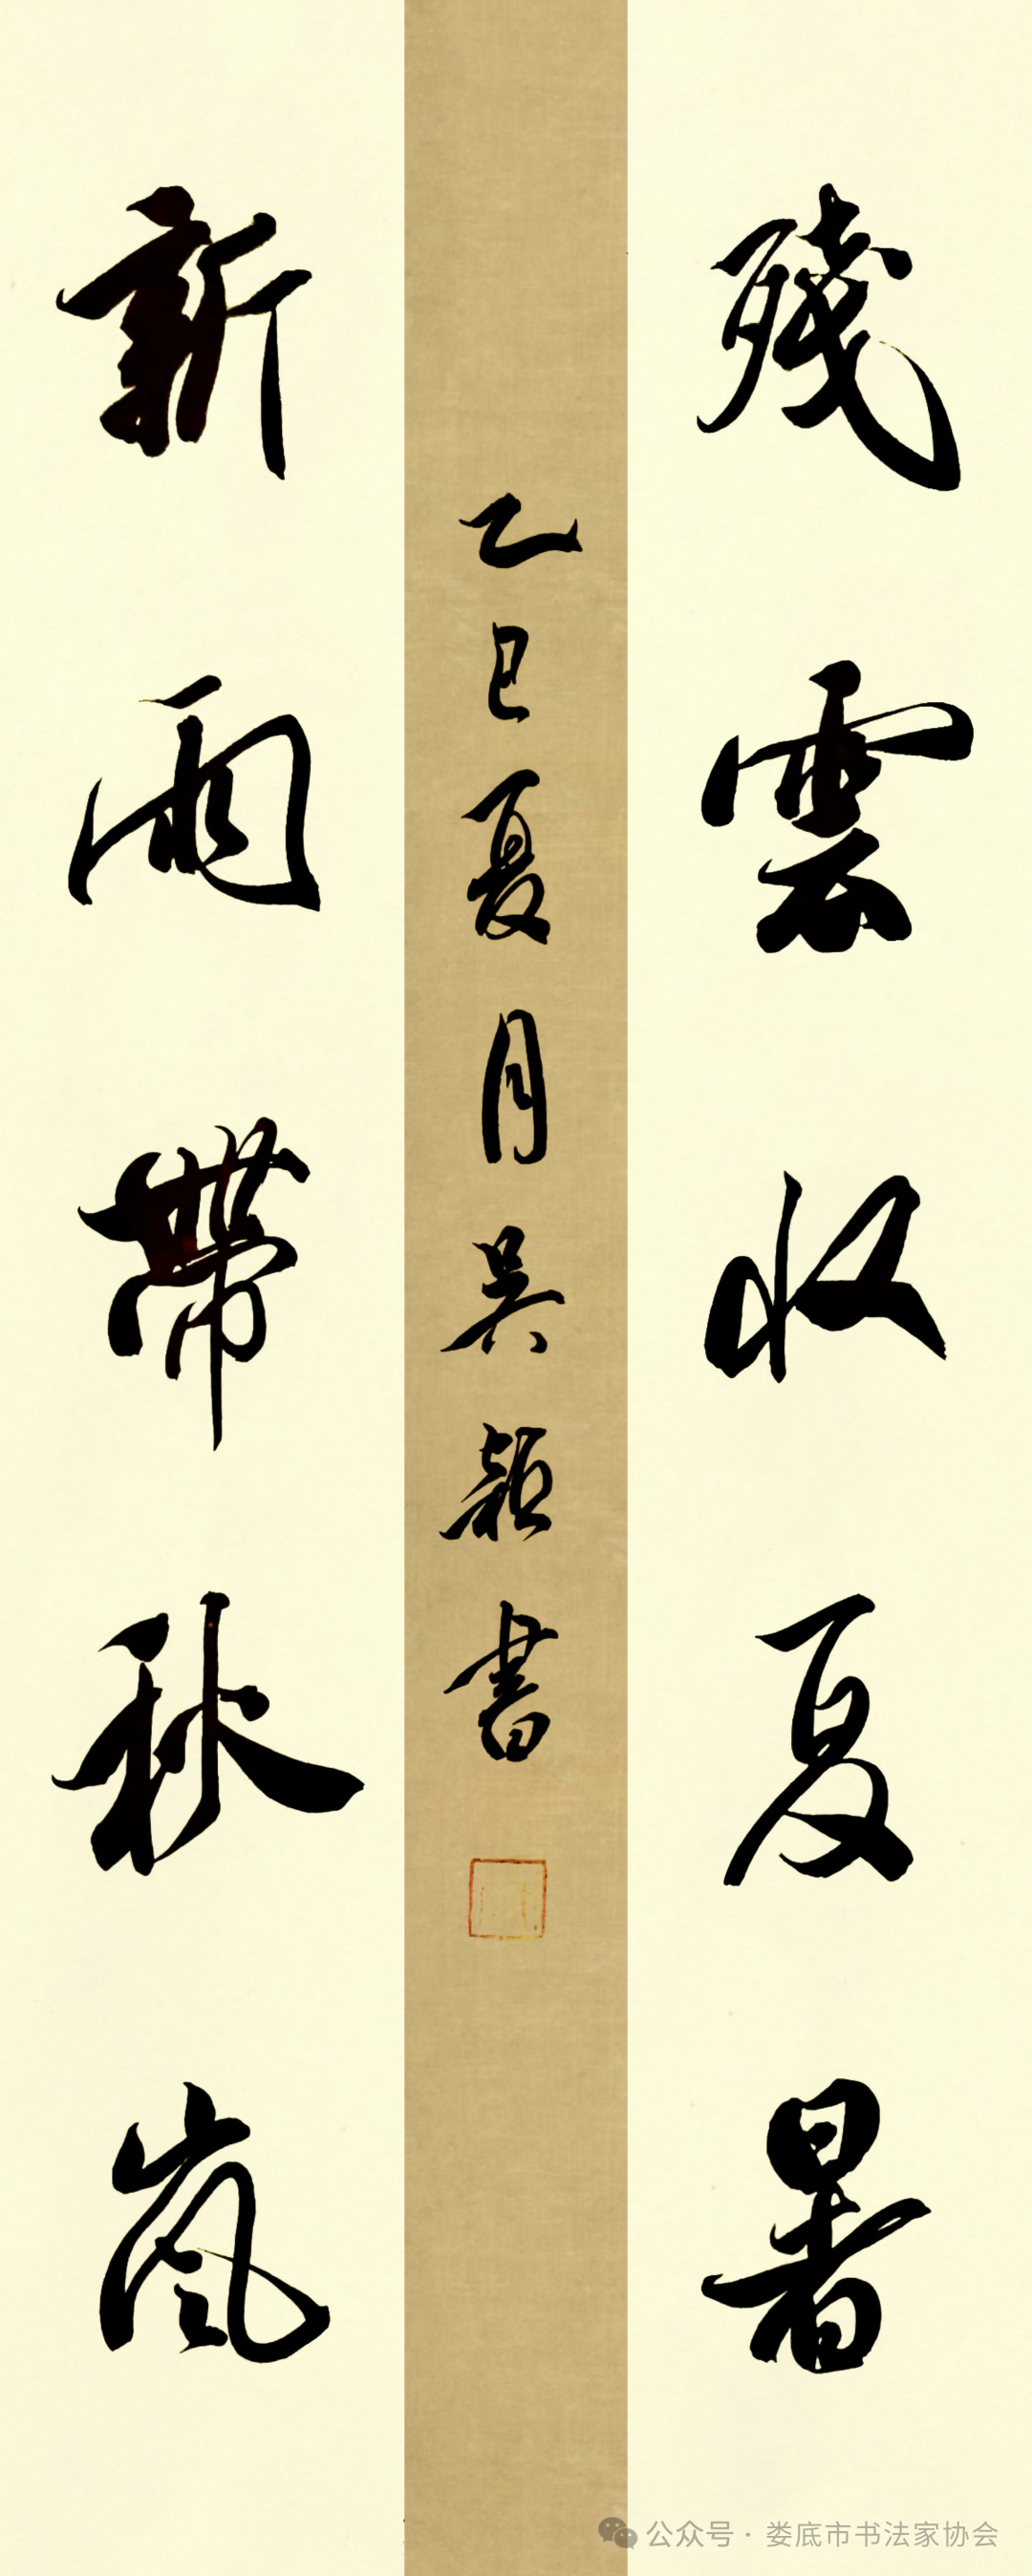 殘雲收夏暑
新雨帶秋嵐
乙巳夏月吴穎書
公众号·娄底市书法家协会